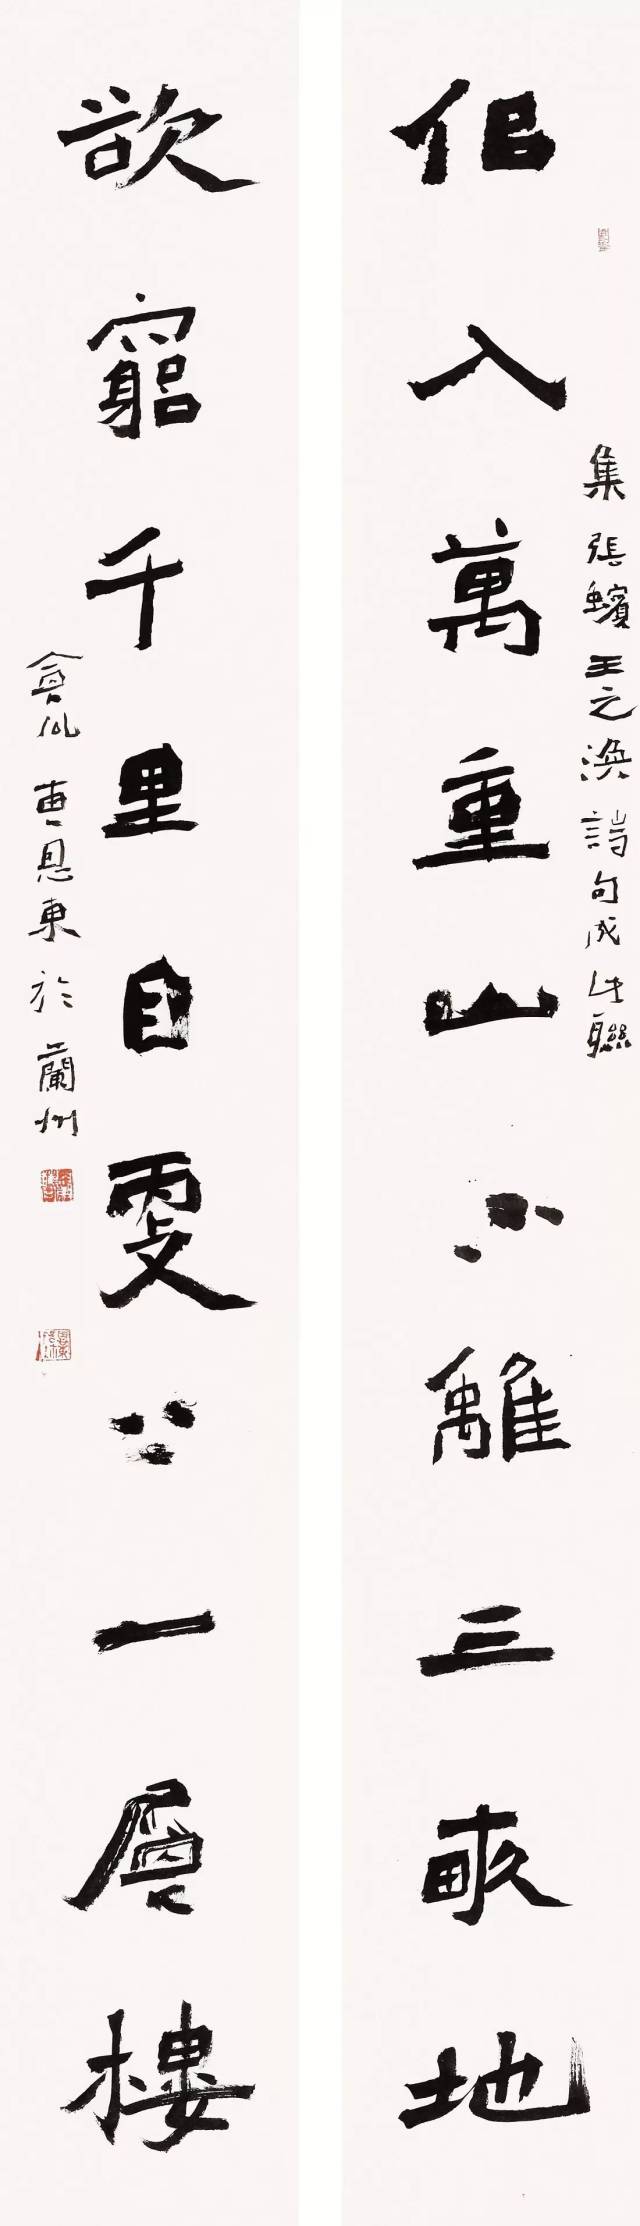 佀入萬重山不離三畝地
集張蠙王之渙詩句成此聯
欲窮千里目更上一層樓
會川曹恩東於蘭州